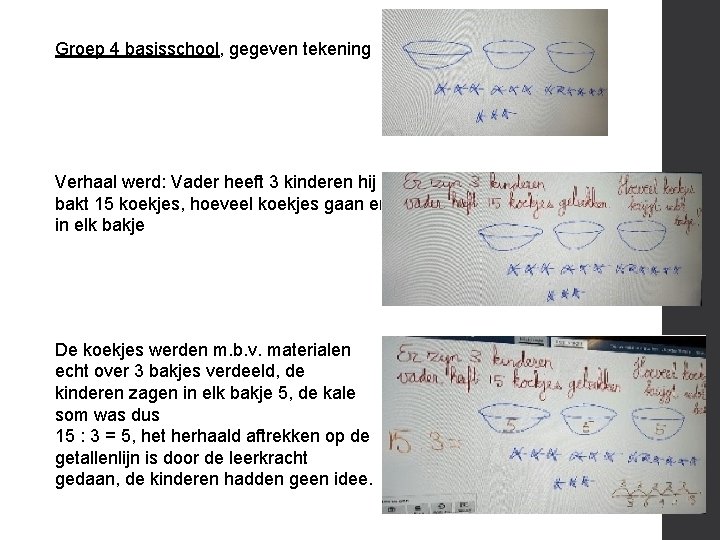 Groep 4 basisschool, gegeven tekening
Verhaal werd: Vader heeft 3 kinderen hij
bakt 15 koekjes, hoeveel koekjes gaan er
in elk bakje
Er zijn 3 kinderen
vader heeft 15 koekjes gebakken.
Hoeveel koekjes
krijgt ieder
De koekjes werden m.b.v. materialen
echt over 3 bakjes verdeeld, de
kinderen zagen in elk bakje 5, de kale
som was dus
15 : 3 = 5, het herhaald aftrekken op de
getallenlijn is door de leerkracht
gedaan, de kinderen hadden geen idee.
Er zijn 3 kinderen
vader heeft 15 koekjes gebakken
Hoeveel koek
krijgt ieder
5 5 5
15 3 =